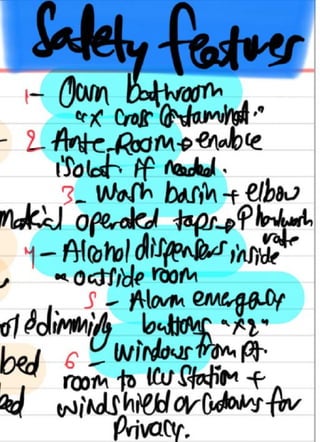 Safety features
1- Own bathroom
"x" Cross Contaminat."
- 2 Ante-Room → enable
isolat. if needed.
3- Wash basin + elbow
operated taps → P handwash
rate
4 - Alcohol dispensers inside
outside room
5 - Alarm emergency
dimming buttons "x2"
bed 6 - Windows from pt.
room to ICU Station +
windshield or Curtains for
Privacy.